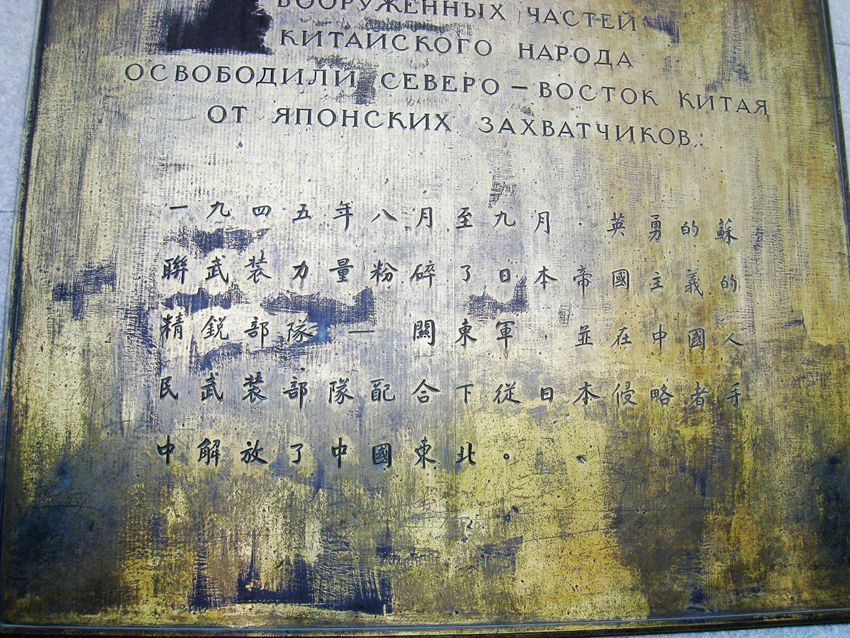 ВООРУЖЕННЫХ ЧАСТЕЙ
КИТАЙСКОГО НАРОДА
ОСВОБОДИЛИ СЕВЕРО – ВОСТОК КИТАЯ
ОТ ЯПОНСКИХ ЗАХВАТЧИКОВ.
一九四五年八月至九月，英勇的蘇
聯武装力量粉碎了日本帝國主義的
精鋭部隊—關東軍，並在中國人
民武装部隊配合下從日本侵略者手
中解放了中國東北。